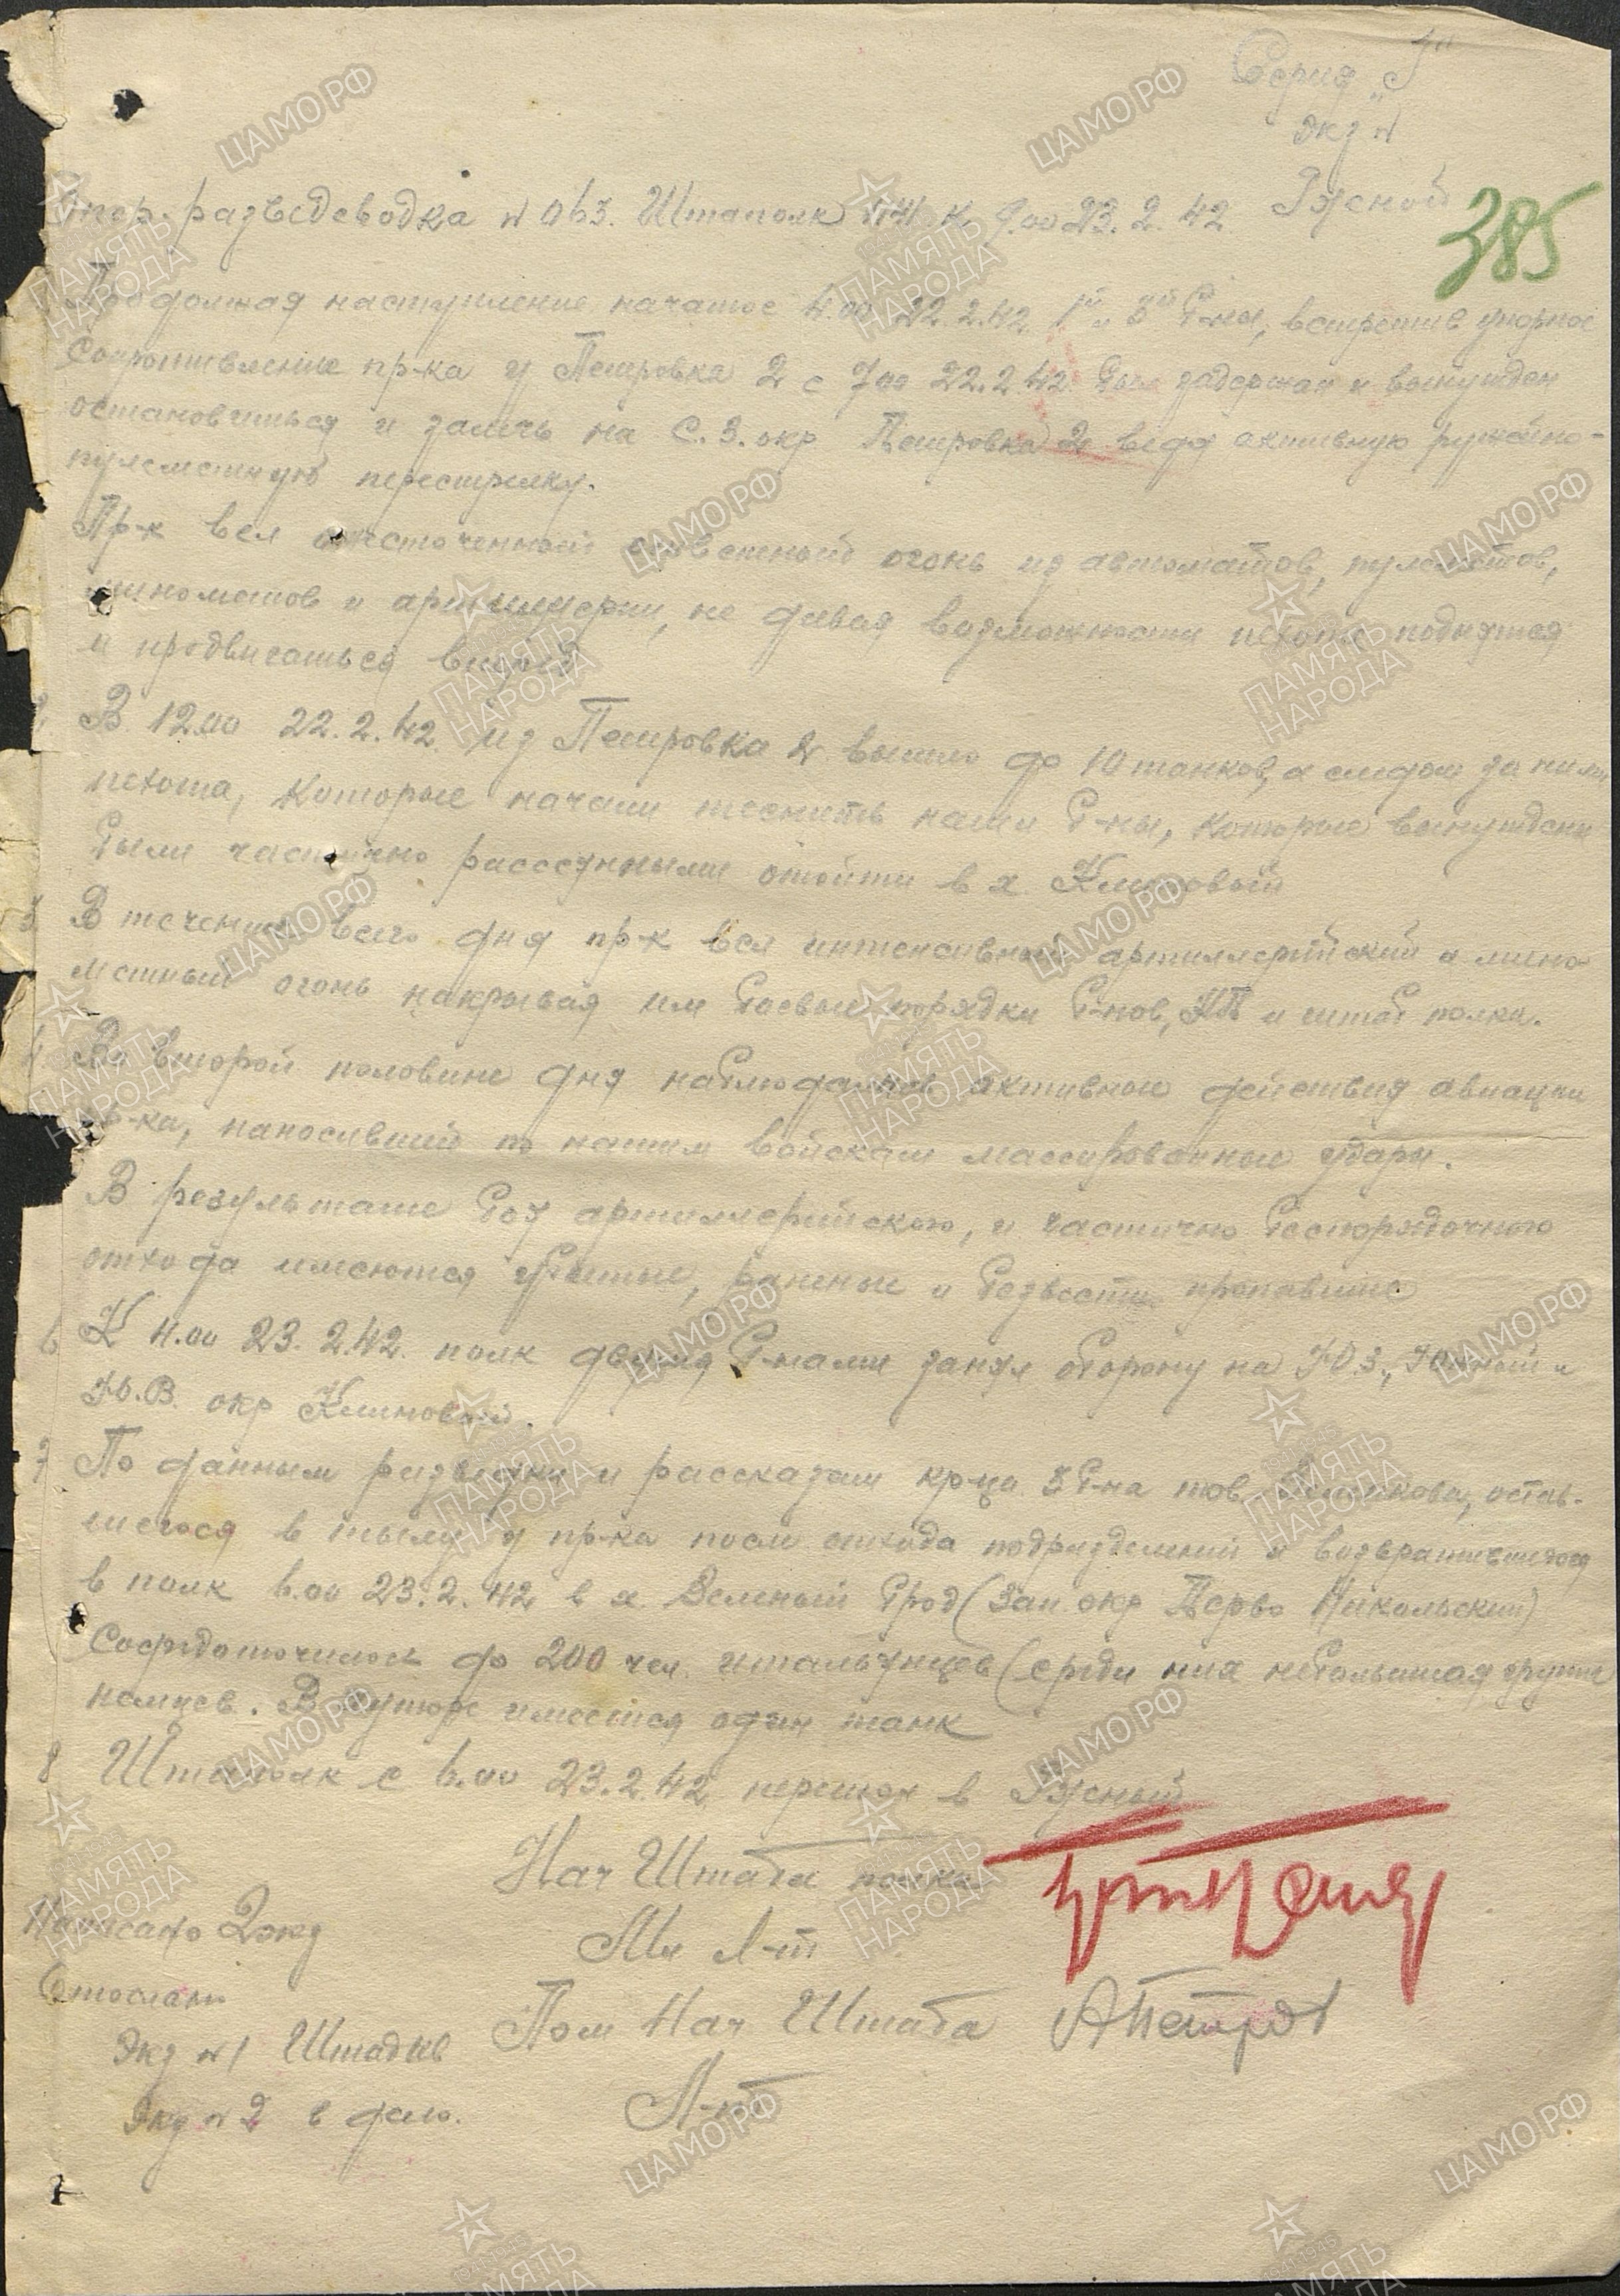 Серия "Г"
Экз №
385
Опер. разведсводка № 063. Штаполк 1141 К 9.00 23.2.42 Рженой
Продолжая наступление начатое 4.00 22.2.42 1й и 3й б-ны, встретив упорное
сопротивление пр-ка у Петровка 2 с 7.00 22.2.42 был задержан и вынужден
остановиться и залечь на С.З. окр Петровка 2 ведя активную ружейно-
пулеметную перестрелку.
Пр-к вел ожесточенный ответный огонь из автоматов, пулеметов,
минометов и артиллерии, не давая возможности пехоте поднятся
и продвигаться вперед
2. В 12.00 22.2.42 из Петровка 2 вышло до 10 танков, а следом за ними
пехота, которые начали теснить наши б-ны, которые вынуждены
были частично рассеянными отойти в х. Клиновый
3 В течении всего дня пр-к вел интенсивный артиллерийский и мино-
метный огонь накрывая им боевые порядки б-нов, КП и штаб полка.
4 Во второй половине дня наблюдались активные действия авиации
пр-ка, наносившей по нашим войскам массированные удары.
В результате боя артиллерийского, и частично беспорядочного
отхода имеются убитые, раненые и безвести пропавшие
6 К 4.00 23.2.42. полк двумя б-нами занял оборону на Ю.З., Южный и
Ю.В. окр Клиновый.
7 По данным разведки и рассказам кр-ца 3 б-на тов. остав-
шегося в тылу у пр-ка после отхода подразделений и возвратившегося
в полк 6.00 23.2.42 в х. Зеленый Брод (Зап. окр Перво Никольский)
сосредоточилось до 200 чел. итальянцев (среди них небольшая группа
немцев. В хуторе имеется один танк
8 Штаполк с 6.00 23.2.42 перешел в Рженый
Нач Штаба полка
Мл Л-т
Написано 2 экз
Отослан
Пом Нач Штаба АПетров
Экз №1 Штадив
Л-нт
Экз №2 в дело.